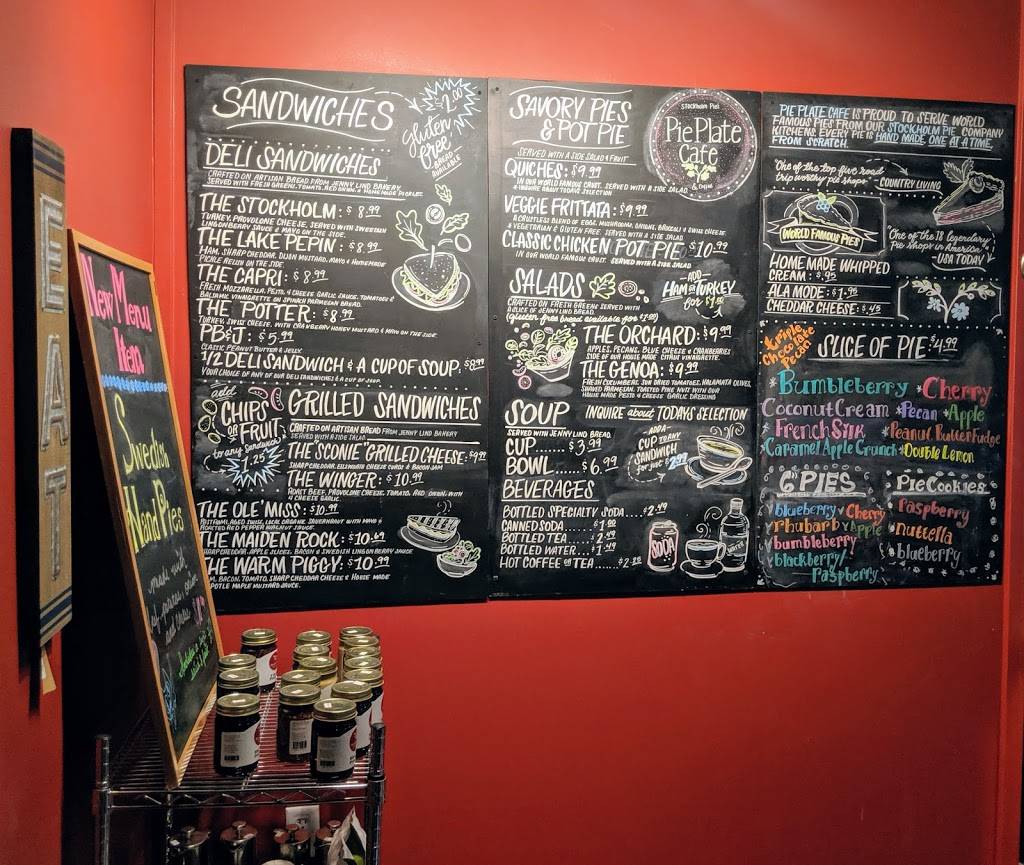 EAT
New Menu
Item
Swedish
Hand Pies
made with
SANDWICHES
$2.00
Gluten
free
BREAD
AVAILABLE
DELI SANDWICHES
CRAFTED ON ARTISAN BREAD FROM JENNY LIND BAKERY
SERVED WITH FRESH GREENS, TOMATO, RED ONION, & HOMEMADE PICKLES
THE STOCKHOLM: $8.99
TURKEY, PROVOLONE CHEESE, SERVED WITH SWEDISH
LINGONBERRY SAUCE & MAYO ON THE SIDE.
THE LAKE PEPIN: $8.99
HAM, SHARP CHEDDAR, DIJON MUSTARD, MAYO & HOMEMADE
PICKLE RELISH ON THE SIDE
THE CAPRI: $8.99
FRESH MOZZARELLA, PESTO, 4 CHEESE GARLIC SAUCE, TOMATOES &
BALSAMIC VINAIGRETTE ON SPINACH PARMESAN BREAD.
THE POTTER: $8.99
TURKEY, SWISS CHEESE, WITH CRANBERRY HONEY MUSTARD & MAYO ON THE SIDE
PB&J: $5.99
CLASSIC PEANUT BUTTER & JELLY
1/2 DELI SANDWICH & A CUP OF SOUP: $8.99
YOUR CHOICE OF ANY OF OUR DELI SANDWICHES & A CUP OF SOUP.
add
CHIPS
OR FRUIT
to any sandwich
$1.25
GRILLED SANDWICHES
CRAFTED ON ARTISAN BREAD FROM JENNY LIND BAKERY
SERVED WITH A SIDE SALAD
THE SCONIE" GRILLED CHEESE: $9.99
SHARP CHEDDAR, ELLSWORTH CHEESE CURDS & BACON JAM
THE WINGER: $10.99
ROAST BEEF, PROVOLONE CHEESE, TOMATO, RED ONION, WITH
4 CHEESE GARLIC.
THE OLE' MISS: $10.99
PASTRAMI, AGED SWISS, LOCAL ORGANIC SAUERKRAUT WITH MAYO &
ROASTED RED PEPPER WALNUT SAUCE.
THE MAIDEN ROCK: $10.49
SHARP CHEDDAR, APPLE SLICES, BACON & SWEDISH LINGONBERRY SAUCE
THE WARM PIGGY: $10.99
HAM, BACON, TOMATO, SHARP CHEDDAR CHEESE & HOUSE MADE
CHIPOTLE MAPLE MUSTARD SAUCE.
SAVORY PIES
& POT PIE
SERVED WITH A SIDE SALAD & FRUIT
Stockholm Pie's
Pie Plate
Café
QUICHES: $9.99
IN OUR WORLD FAMOUS CRUST. SERVED WITH A SIDE SALAD
INQUIRE ABOUT TODAYS SELECTION
VEGGIE FRITTATA: $9.99
A CRUSTLESS BLEND OF EGGS, MUSHROOMS, ONIONS, BROCCOLI & SWISS CHEESE
VEGETARIAN & GLUTEN FREE. SERVED WITH A SIDE SALAD
CLASSIC CHICKEN POT PIE: $10.99
IN OUR WORLD FAMOUS CRUST SERVED WITH A SIDE SALAD
SALADS
CRAFTED ON FRESH GREENS SERVED WITH
A SLICE OF JENNY LIND BREAD.
(gluten free bread available for $2.00)
ADD
HAM OR TURKEY
THE ORCHARD: $9.99
APPLES, PECANS, BLUE CHEESE & CRANBERRIES
SIDE OF OUR HOUSE MADE CITRUS VINAIGRETTE.
THE GENOA: $9.99
FRESH CUCUMBERS, SUN DRIED TOMATOES, KALAMATA OLIVES,
SHAVED PARMESAN, TOASTED PINE NUTS WITH OUR
HOUSE MADE PESTO & CHEESE GARLIC DRESSING
SOUP INQUIRE about TODAYS SELECTION
SERVED WITH JENNY LIND BREAD
CUP..... $3.99
BOWL.... $6.99
ADD A
CUP TO ANY
SANDWICH
for just $2.99
BEVERAGES
BOTTLED SPECIALTY SODA....$2.49
CANNED SODA.....$1.00
BOTTLED TEA......$2.49
BOTTLED WATER...$1.49
HOT COFFEE OR TEA....$2.25
SODA
PIE PLATE CAFE IS PROUD TO SERVE WORLD
FAMOUS PIES FROM OUR STOCKHOLM PIE COMPANY
KITCHENS. EVERY PIE IS HAND MADE ONE AT A TIME,
FROM SCRATCH.
"One of the top five road
trip worthy pie shops"
COUNTRY LIVING
WORLD FAMOUS PIES
"One of the 18 legendary
Pie shops in America."
-USA TODAY
HOMEMADE WHIPPED
CREAM: $.95
ALA MODE: $1.95
CHEDDAR CHEESE: $.45
SLICE OF PIE: $4.99
*Bumbleberry *Cherry
Coconut Cream *Pecan *Apple
*French Silk *Peanut Butter Fudge
*Caramel Apple Crunch *Double Lemon
6" PIES
blueberry Cherry
rhubarb Apple
bumbleberry
blackberry
Raspberry
PIE COOKIES
Raspberry
nuttella
blueberry